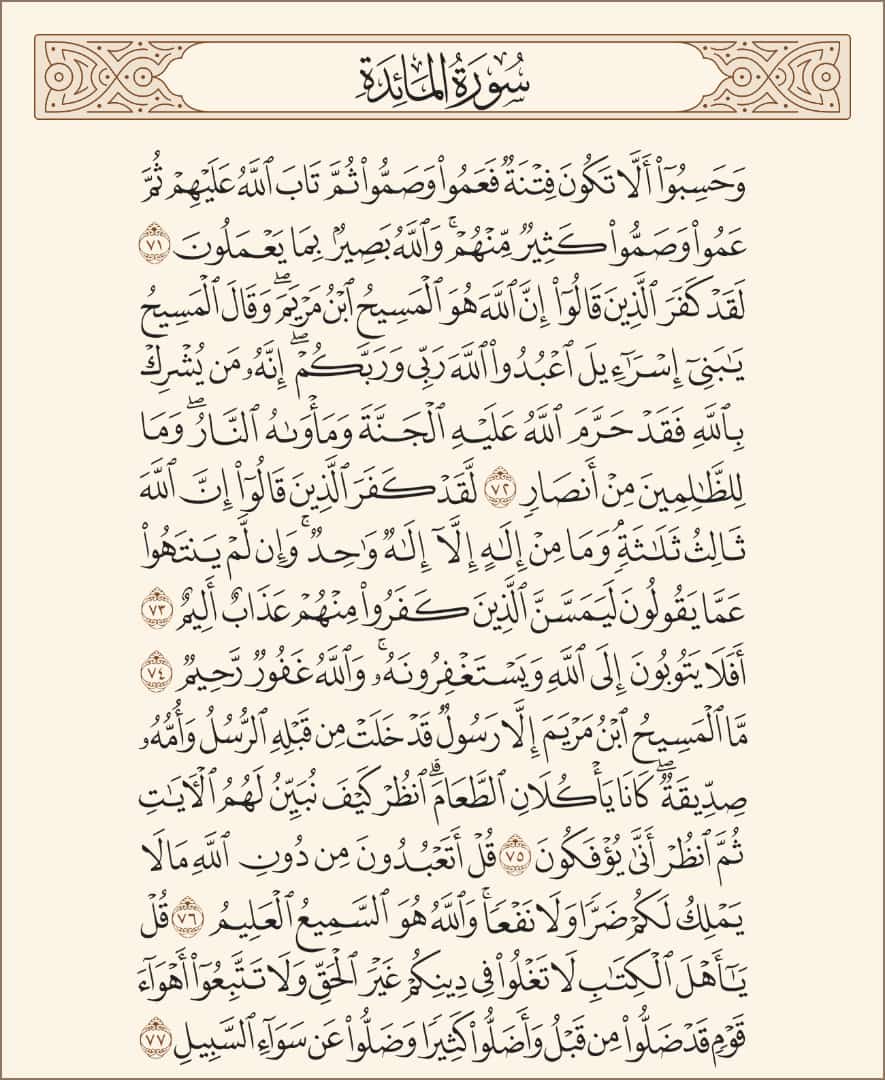 سُورَةُ المَائِدَةِ
وَحَسِبُوٓا۟ أَلَّا تَكُونَ فِتْنَةٌ فَعَمُوا۟ وَصَمُّوا۟ ثُمَّ تَابَ ٱللَّهُ عَلَيْهِمْ ثُمَّ
عَمُوا۟ وَصَمُّوا۟ كَثِيرٌ مِّنْهُمْ ۚ وَٱللَّهُ بَصِيرٌۢ بِمَا يَعْمَلُونَ ٧١
لَقَدْ كَفَرَ ٱلَّذِينَ قَالُوٓا۟ إِنَّ ٱللَّهَ هُوَ ٱلْمَسِيحُ ٱبْنُ مَرْيَمَ ۖ وَقَالَ ٱلْمَسِيحُ
يَٰبَنِىٓ إِسْرَٰٓءِيلَ ٱعْبُدُوا۟ ٱللَّهَ رَبِّى وَرَبَّكُمْ ۖ إِنَّهُۥ مَن يُشْرِكْ
بِٱللَّهِ فَقَدْ حَرَّمَ ٱللَّهُ عَلَيْهِ ٱلْجَنَّةَ وَمَأْوَىٰهُ ٱلنَّارُ ۖ وَمَا
لِلظَّٰلِمِينَ مِنْ أَنصَارٍ ٧٢ لَّقَدْ كَفَرَ ٱلَّذِينَ قَالُوٓا۟ إِنَّ ٱللَّهَ
ثَالِثُ ثَلَٰثَةٍۘ وَمَا مِنْ إِلَٰهٍ إِلَّآ إِلَٰهٌ وَٰحِدٌ ۚ وَإِن لَّمْ يَنتَهُوا۟
عَمَّا يَقُولُونَ لَيَمَسَّنَّ ٱلَّذِينَ كَفَرُوا۟ مِنْهُمْ عَذَابٌ أَلِيمٌ ٧٣
أَفَلَا يَتُوبُونَ إِلَى ٱللَّهِ وَيَسْتَغْفِرُونَهُۥ ۚ وَٱللَّهُ غَفُورٌ رَّحِيمٌ ٧٤
مَّا ٱلْمَسِيحُ ٱبْنُ مَرْيَمَ إِلَّا رَسُولٌ قَدْ خَلَتْ مِن قَبْلِهِ ٱلرُّسُلُ وَأُمُّهُۥ
صِدِّيقَةٌ ۖ كَانَا يَأْكُلَانِ ٱلطَّعَامَ ۗ ٱنظُرْ كَيْفَ نُبَيِّنُ لَهُمُ ٱلْـَٔايَٰتِ
ثُمَّ ٱنظُرْ أَنَّىٰ يُؤْفَكُونَ ٧٥ قُلْ أَتَعْبُدُونَ مِن دُونِ ٱللَّهِ مَا لَا
يَمْلِكُ لَكُمْ ضَرًّا وَلَا نَفْعًا ۚ وَٱللَّهُ هُوَ ٱلسَّمِيعُ ٱلْعَلِيمُ ٧٦ قُلْ
يَٰٓأَهْلَ ٱلْكِتَٰبِ لَا تَغْلُوا۟ فِى دِينِكُمْ غَيْرَ ٱلْحَقِّ وَلَا تَتَّبِعُوٓا۟ أَهْوَآءَ
قَوْمٍ قَدْ ضَلُّوا۟ مِن قَبْلُ وَأَضَلُّوا۟ كَثِيرًا وَضَلُّوا۟ عَن سَوَآءِ ٱلسَّبِيلِ ٧٧